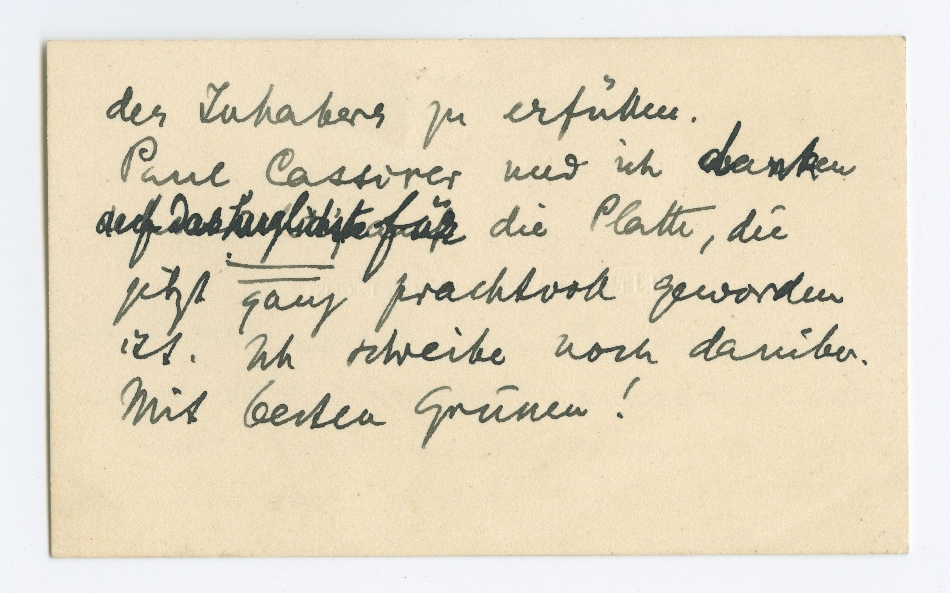 des Inhabers zu erfüllen.
Paul Cassirer und ich danken
auf das herzlichste für die Platte, die
jetzt ganz prachtvoll geworden
ist. Ich schreibe noch darüber.
Mit besten Grüssen!